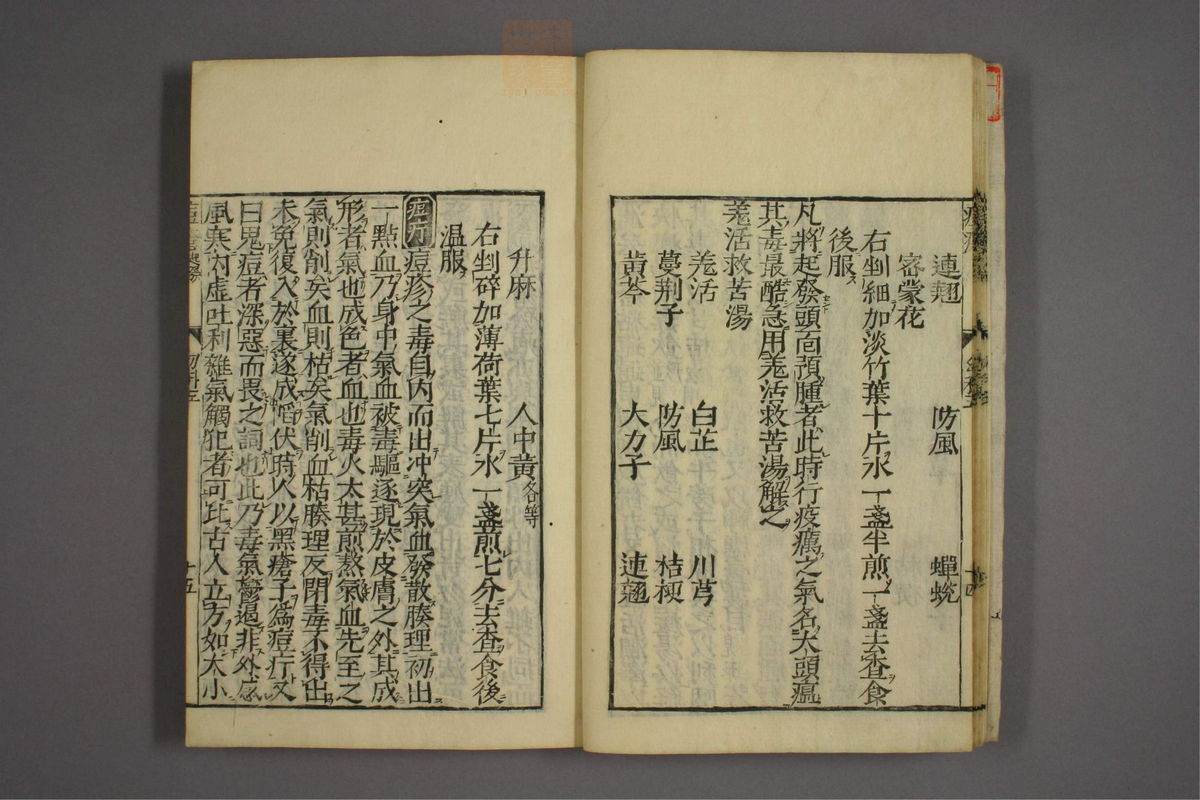 連翹 防風 蟬蛻
密蒙花
右剉細加淡竹葉十片水一盞半煎一盞去查食
後服
凡將起發頭面預腫者此時行疫癘之氣名大頭瘟
其毒最酷急用羗活救苦湯解之
羗活救苦湯
羗活 白芷 川芎
蔓荆子 防風 桔梗
黄芩 大力子 連翹
升麻 人中黄各等
右剉碎加薄荷葉七片水一盞煎七分去查食後
温服
痘疔痘疹之毒自内而出冲突氣血發散腠理初出
一點血乃身中氣血被毒驅逐現於皮膚之外其成
形者氣也成色者血也毒火太甚煎熬氣血先至之
氣則削矣血則枯矣氣削血枯腠理反閉毒不得出
未免復入於裏遂成陷伏時人以黑瘡子爲痘疔又
曰鬼痘者深惡而畏之詞也此乃毒氣鬱遏非外感
風寒内虚吐利雜氣觸犯者可比古人立方如大小
十五